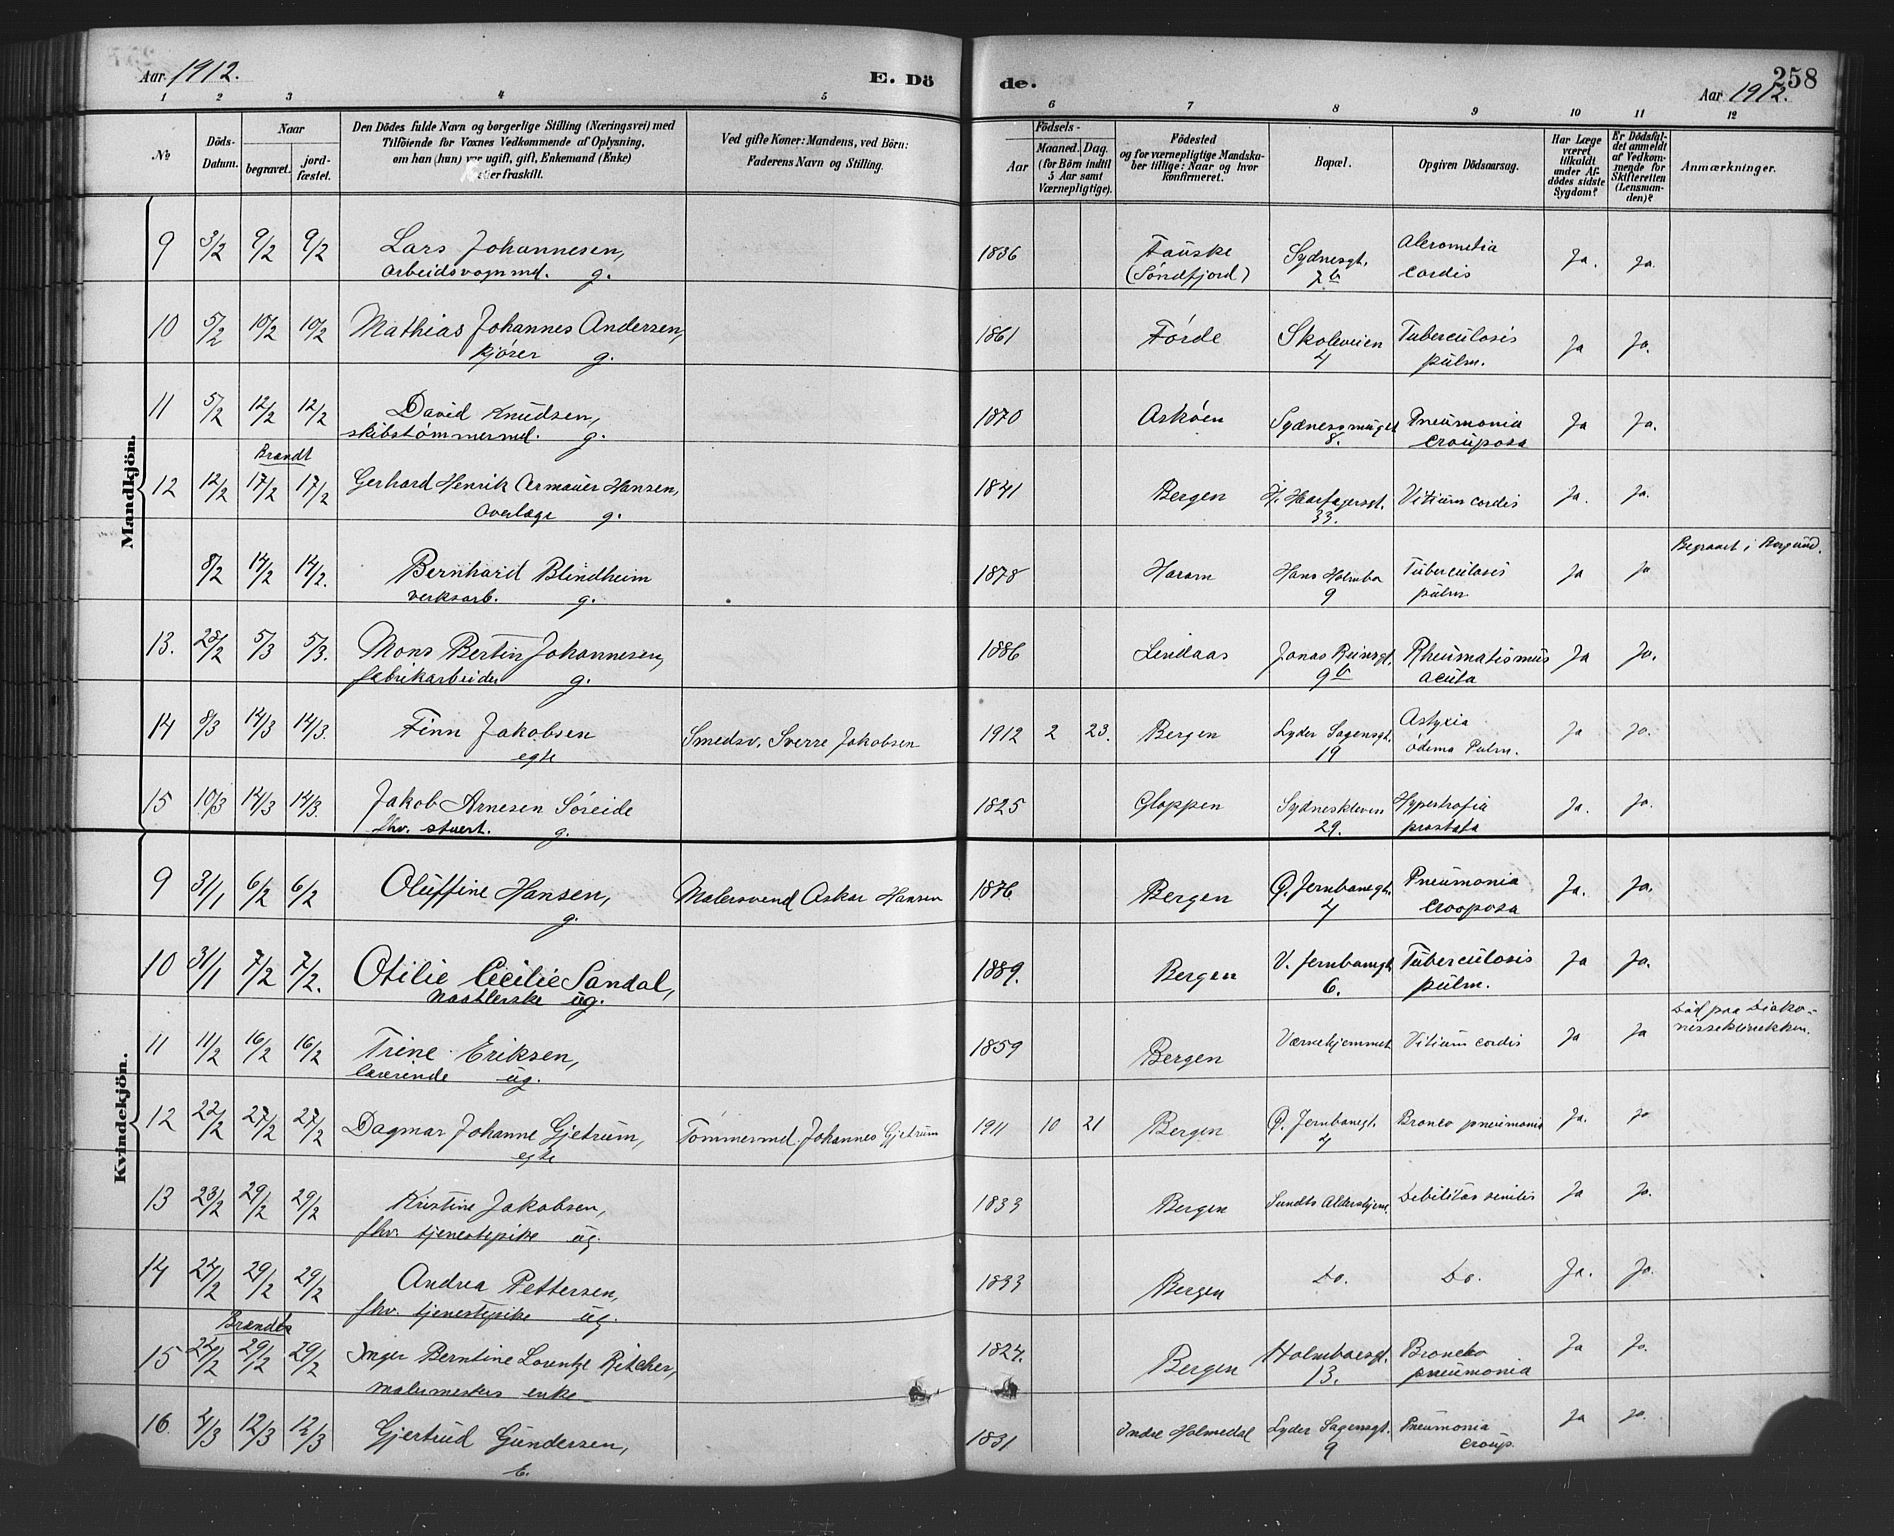 Aar 1912.
E. Dö
de.
258
Aar 1912.
1 2 3 4 5 6 7 8 9 10 11 12
No
Döds-
Datum.
Naar
begravet.
jord-
fæstet.
Den Dödes fulde Navn og borgerlige Stilling (Næringsvei) med
Tilföiende for Voxnes Vedkommende af Oplysning,
om han (hun) var ugift, gift, Enkemand (Enke)
eller fraskilt.
Ved gifte Koner: Mandens, ved Börn:
Faderens Navn og Stilling.
Födsels-
Aar
Maaned. Dag.
(for Börn indtil
5 Aar samt
Værnepligtige).
Födested
og for værnepligtige Mandska-
ber tillige: Naar og hvor
konfirmeret.
Bopæl.
Opgiven Dödsaarsag.
Har Læge
været
tilkaldt
under Af-
dödes sidste
Sygdom?
Er Dödsfal-
det anmeldt
af Vedkom-
mende for
Skifteretten
(Lensman-
den)?
Anmærkninger.
Mandkjön.
9 3/2 9/2 9/2 Lars Johannesen, 1836 Fauske Sydnesgt. cordis Ja. Ja.
arbeidsvognmd. g. (Söndfjord) 7b
10 5/2 10/2 10/2 Mathias Johannes Andersen, 1861 Förde Skoleveien Tuberculosis Ja Ja.
kjører g. 4 pulm.
11 5/2 12/2 12/2 David Knudsen, 1870 Askøen Pneumonia Ja Ja.
skibstømmermd. g. 8. crouposa
Brandt
12 12/2 17/2 17/2 Gerhard Henrik Armauer Hansen, 1841 Bergen H. Haarfagersgt. Vitium cordis Ja. Ja.
Overlæge g. 33.
8/2 14/2 14/2. Bernhard Blindheim 1878 Haram Hans Holmbo Tuberculosis Ja Ja Begravet i Borgund.
verksarb. g. 9 pulm
13. 28/2 5/3 5/3. Mons Bertin Johannesen, 1886 Lindaas Jonas Reinsgt. Rheumatismus Ja Ja.
fabrikarbeider g. 9b acuta
14 8/3 14/3 14/3. Finn Jakobsen Smedsv. Sverre Jakobsen 1912 2 23. Bergen Lyder Sagensgt. Astyxia Ja Ja.
egte 19 ödema Pulm.
15 10/3 14/3 14/3. Jakob Arnesen Søreide 1825 Gloppen Sydneskleven Hypertrofia Ja. Ja.
fhv. stuert. g. 29. prostata
Kvindekjön.
9 31/1 6/2 6/2 Oluffine Hansen, Malersvend Askar Hansen 1876 Bergen Ø. Jernbanegt. Pneumonia Ja. Ja.
g. 4 crooposa
10 31/1 7/2 7/2. Otilie Cecilie Sandal, 1889. Bergen V. Jernbanegt. Tuberculosis Ja Ja.
ug. 6. pulm.
11 11/2 16/2 16/2 Trine Eriksen, 1859 Bergen Værnehjemmet Vitium cordis Ja Ja Död paa Diako-
nisseklinikken.
lærerinde ug.
12 22/2 27/2 27/2 Dagmar Johanne Gjetrum, Tömmermd. Johannes Gjetrum 1911 10 21 Bergen Ø. Jernbanegt. Bronco pneumonia Ja. Ja
egte 4
13 23/2 29/2 29/2 Kristine Jakobsen, 1833 Bergen Sundts Aldershjem Debilitas senilis Ja Ja.
fhv. tjenestepike ug.
14 24/2 29/2 29/2 Andrea Pettersen, 1833 Bergen Do. Do. Ja. Ja.
fhv. tjenestepike ug.
Brandt
15 24/2 29/2 29/2 Inger Berntine Lorentze Ritcher, 1824. Bergen Holmboesgt. Broncho Ja Ja.
malermesters enke 13. pneumonia
16 4/3 12/3 12/3 Gjertrud Gundersen, 1831 Indre Holmedal Lyder Sagensgt. Pneumonia Ja Ja.
E. 9 croup.